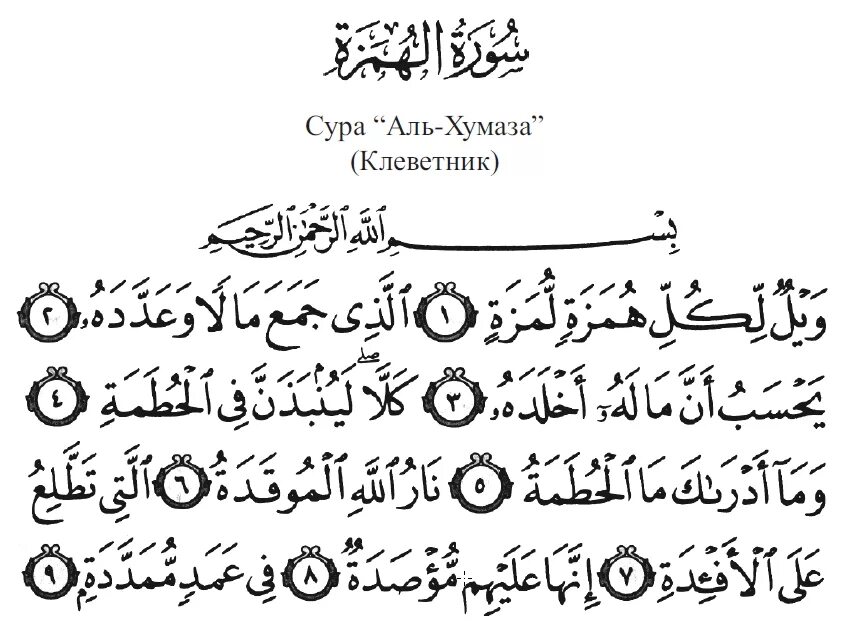 سُورَةُ الْهُمَزَةِ
Сура “Аль-Хумаза”
(Клеветник)
بِسْمِ اللَّهِ الرَّحْمَٰنِ الرَّحِيمِ
وَيْلٌ لِّكُلِّ هُمَزَةٍ لُّمَزَةٍ ١ ٱلَّذِى جَمَعَ مَالًا وَعَدَّدَهُۥ ٢
يَحْسَبُ أَنَّ مَالَهُۥٓ أَخْلَدَهُۥ ٣ كَلَّا ۖ لَيُنۢبَذَنَّ فِى ٱلْحُطَمَةِ ٤
وَمَآ أَدْرَىٰكَ مَا ٱلْحُطَمَةُ ٥ نَارُ ٱللَّهِ ٱلْمُوقَدَةُ ٦ ٱلَّتِى تَطَّلِعُ
عَلَى ٱلْأَفْـِٔدَةِ ٧ إِنَّهَا عَلَيْهِم مُّؤْصَدَةٌ ٨ فِى عَمَدٍ مُّمَدَّدَةٍۭ ٩